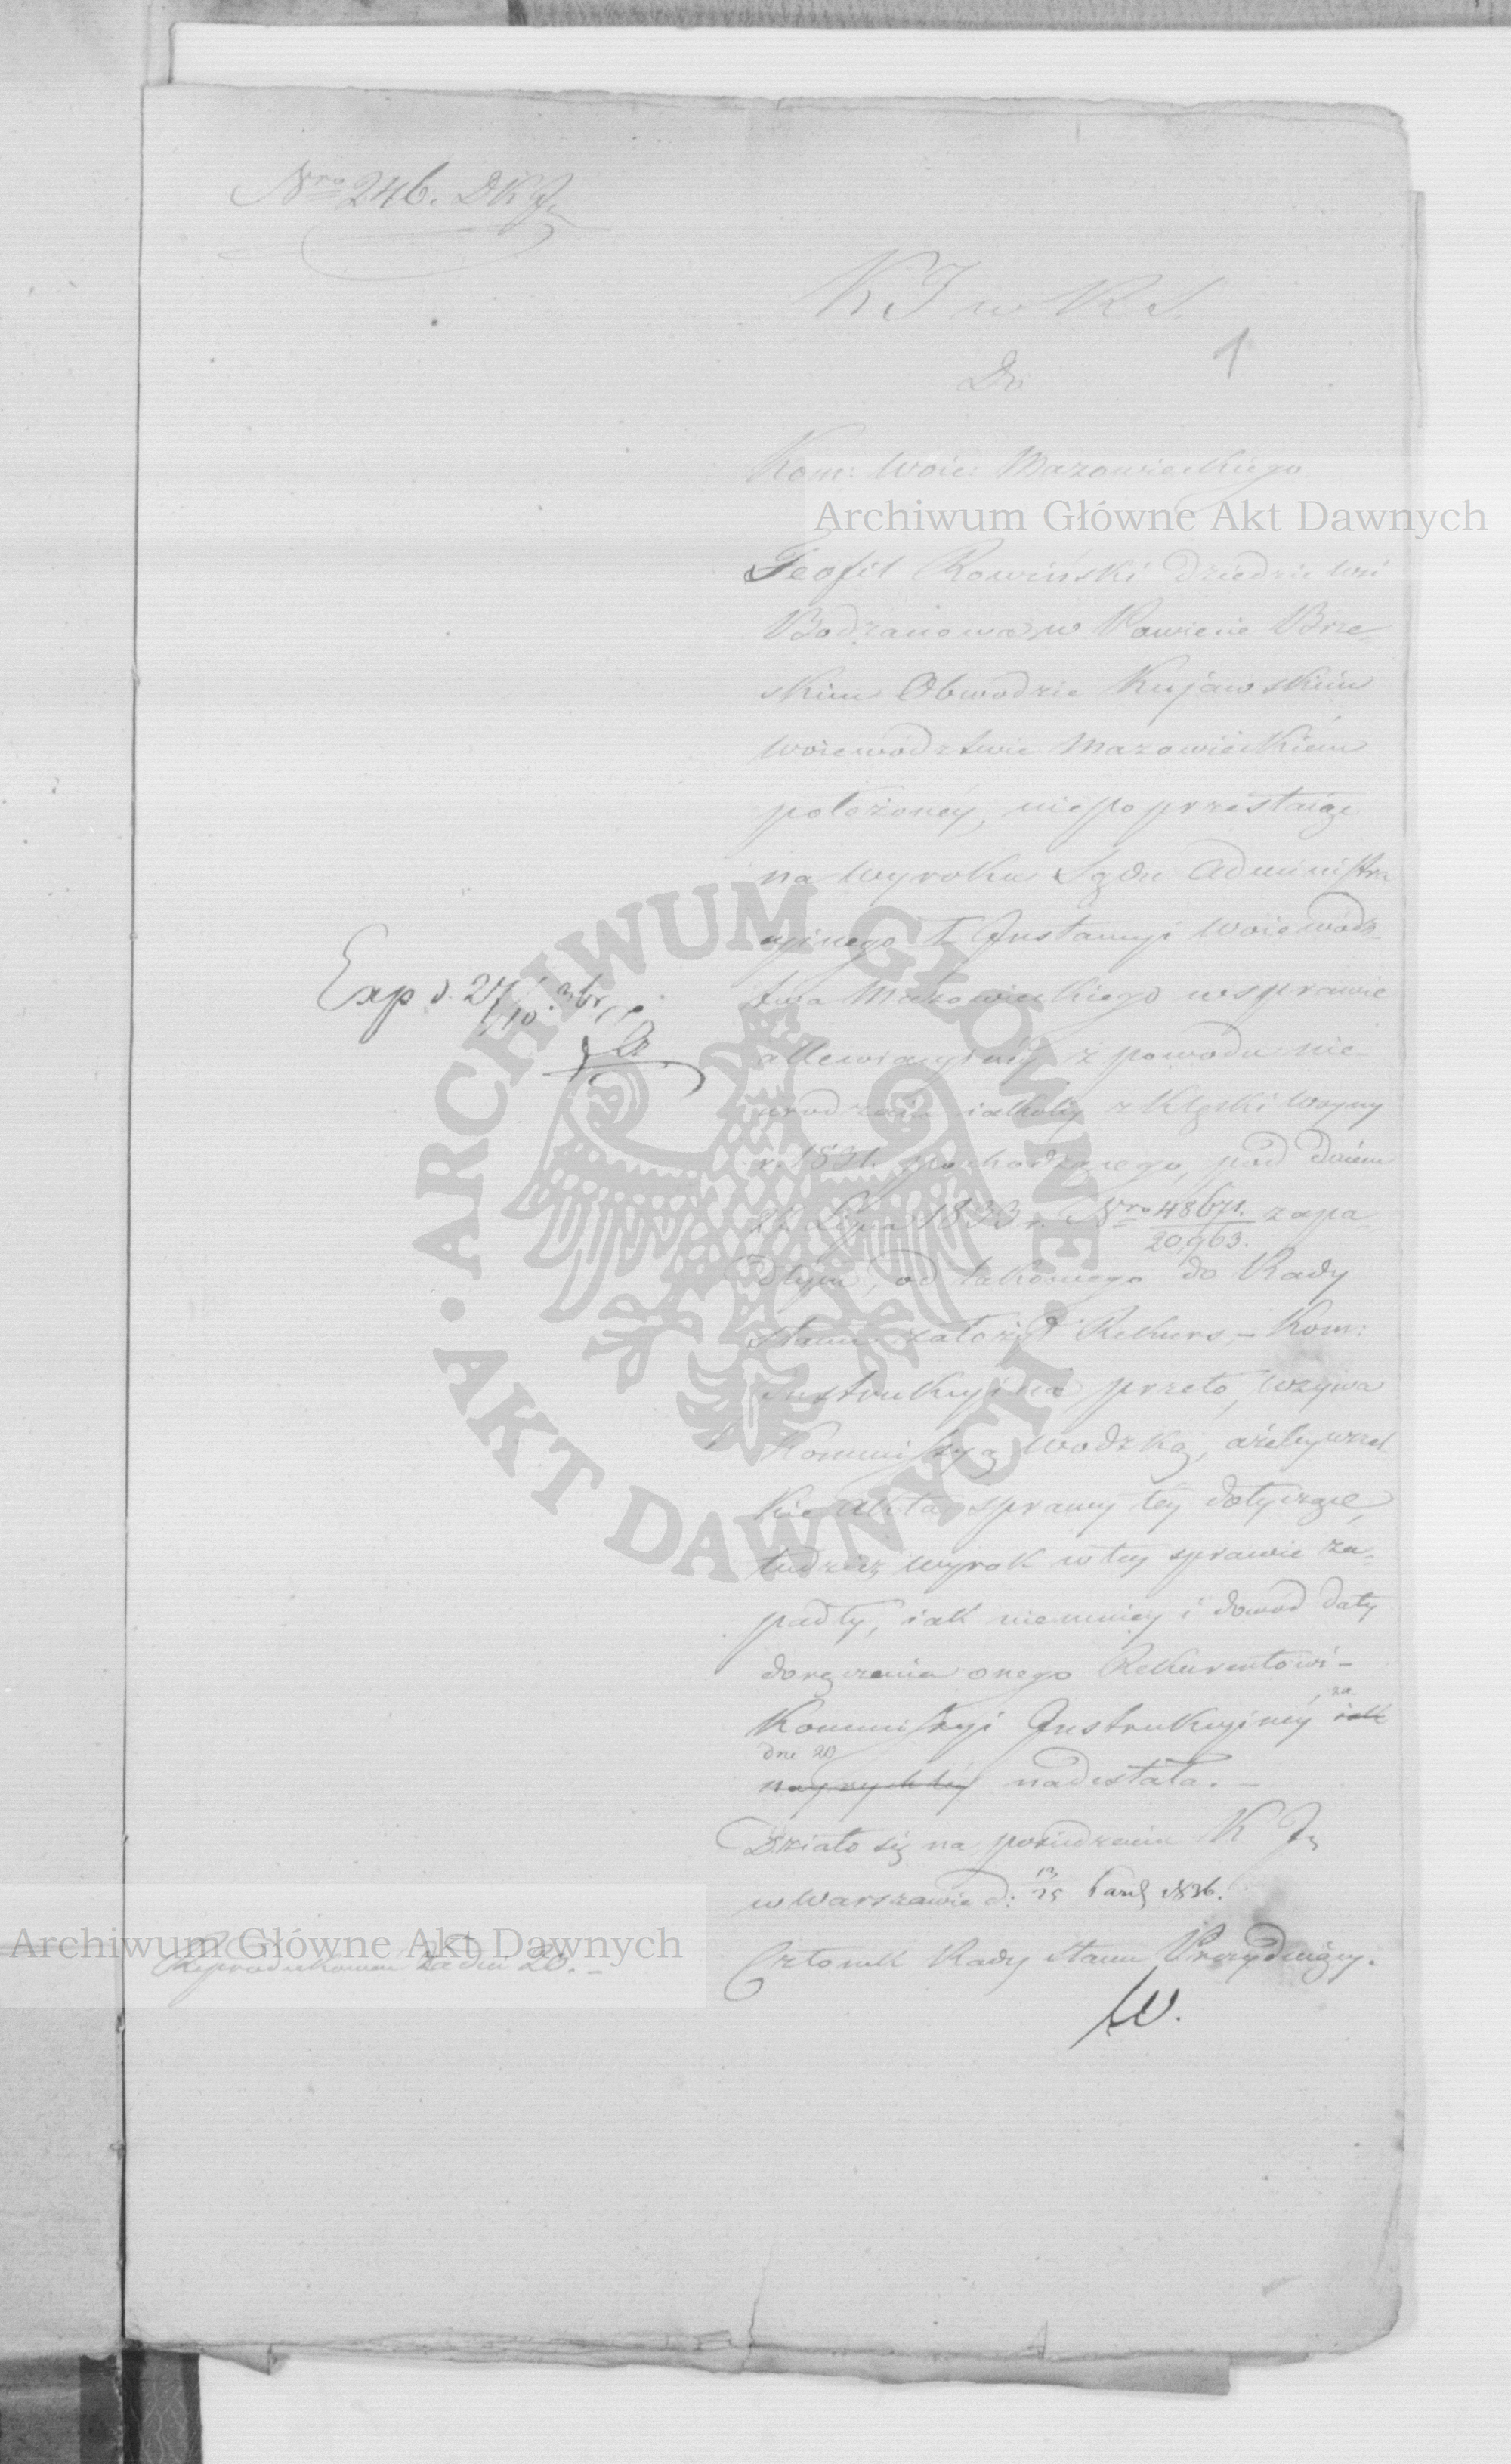 Nro 246. DKJ.
K J w R S.
1
Do
Kom: Woie: Mazowieckiego
Archiwum Główne Akt Dawnych
Teofil Rowiński dziedzic wsi
Bodzanowa w Powiecie Brze-
skim Obwodzie Kujawskim
Woiewództwie Mazowieckiem
położoney, niepoprzestaiąc
na wyroku Sądu Administra
cyinego I Instancyi Woiewódz-
twa Mazowieckiego w sprawie
allewiacyiney z powodu nie
urodzaiu iakoby z klęski woyny
r. 1831. pochodzącego, pod dniem
22 Lipca 1833 r. Nro 48671./20,963. zapa-
dłym, od takowego do Rady
Stanu założył Rekurs, – Kom:
Instrukcyina przeto, wzywa
Kommissyą Wodzką, ażeby wszel-
kie Akta sprawy tey dotyczące,
tudzież wyrok w tey sprawie za-
padły, iak niemniey i dowód daty
doręczenia onego Rekurentowi –
Kommissyi Instrukcyiney iak za
dni 20 nayrychley nadesłała. –
Działo się na posiedzeniu K J.
w Warszawie d: 13/25 Paźd 1836.
Członek Rady Stanu Prezyduiący.
W.
Exp d. 27/10
Archiwum Główne Akt Dawnych
Reprodukowane za dni 20. –
ARCHIWUM GŁÓWNE AKT DAWNYCH